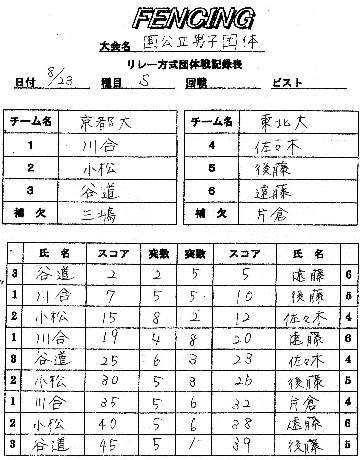 FENCING
大会名 国公立男子団体
リレー方式団体戦記録表
日付 8/23 種目 S 回戦 ピスト
チーム名 京都大 チーム名 東北大
1 川合 4 佐々木
2 小松 5 後藤
3 谷道 6 遠藤
補欠 三嶋 補欠 片倉
氏名 スコア 突数 突数 スコア 氏名
3 谷道 2 2 5 5 遠藤 6
1 川合 7 5 5 10 後藤 5
2 小松 15 8 2 12 佐々木 4
1 川合 19 4 8 20 遠藤 6
3 谷道 25 6 3 23 佐々木 4
2 小松 30 5 3 26 後藤 5
1 川合 35 5 6 32 片倉 4
2 小松 40 5 6 38 遠藤 6
3 谷道 45 5 1 39 後藤 5